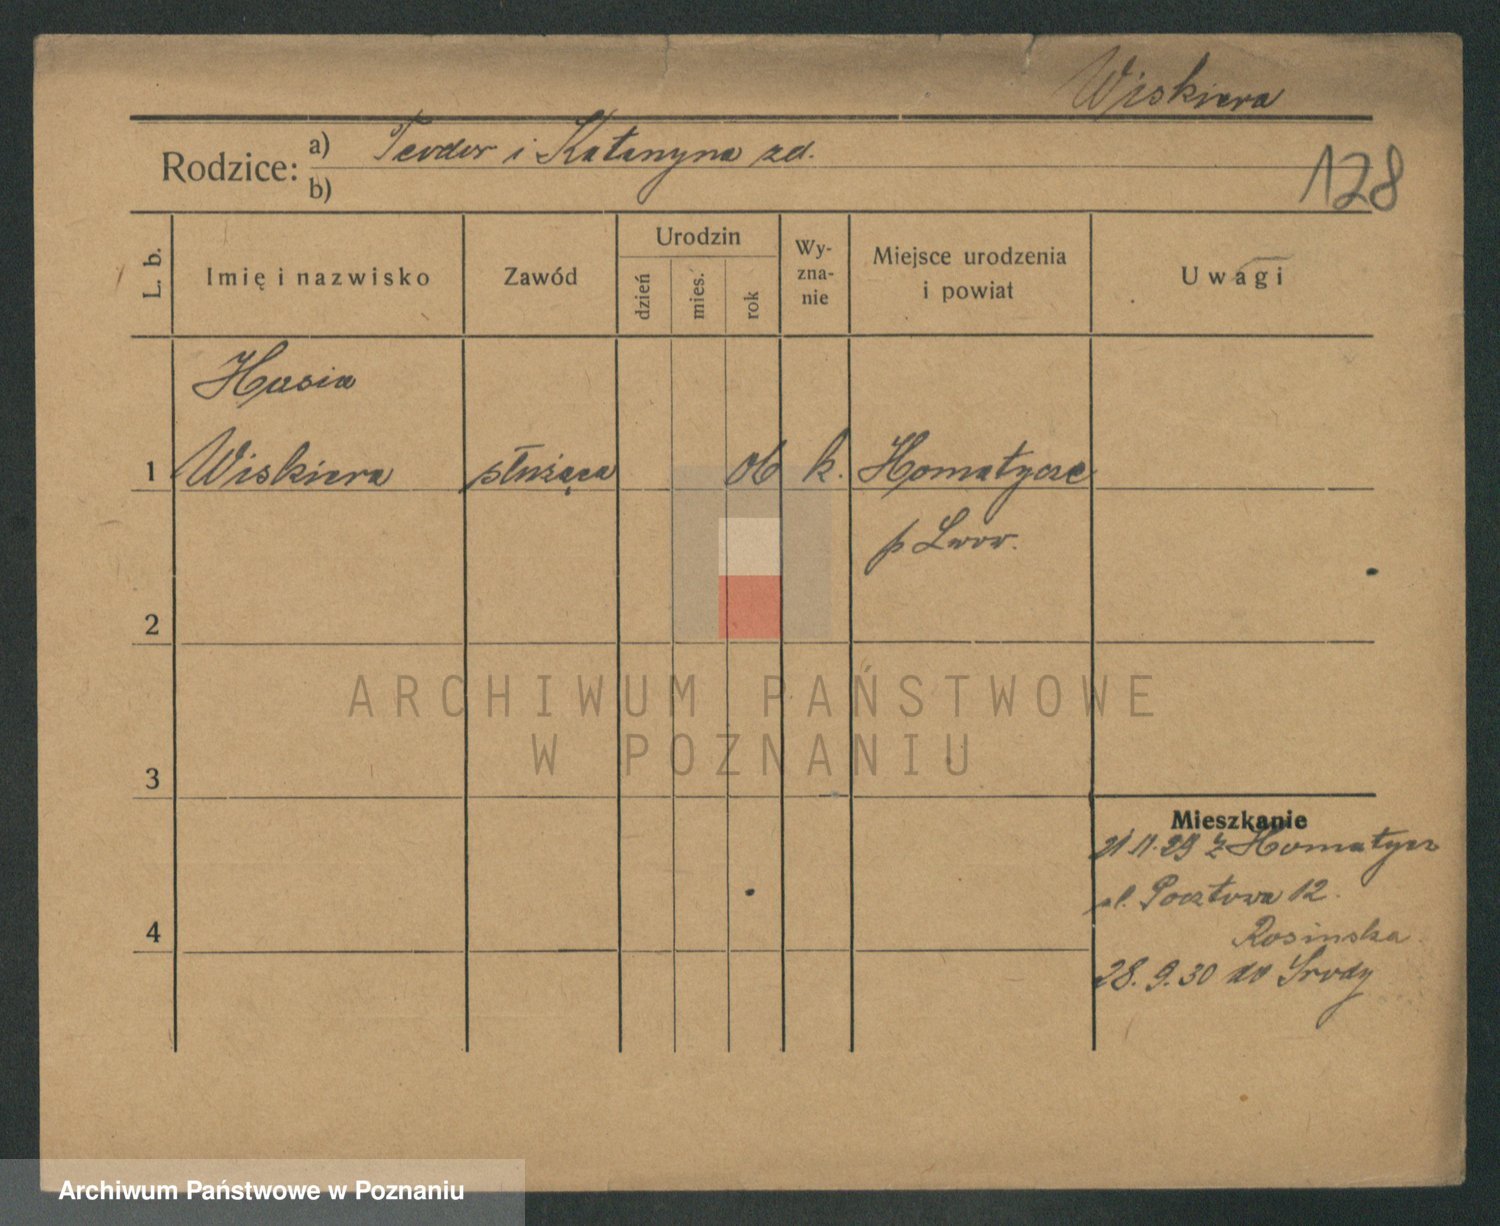 Wiskiera
Rodzice: a) Teodor i Katarzyna zd.
b)
128
L. b.
Imię i nazwisko
Zawód
Urodzin
dzień
mies.
rok
Wy-
zna-
nie
Miejsce urodzenia
i powiat
Uwagi
Hasia
1 Wiskiera służąca 06 k. Homatycze
p Lwow.
2
ARCHIWUM PAŃSTWOWE
W POZNANIU
3
Mieszkanie
21 11.29 z Homatycz
ul. Pocztowa 12.
Rosinska
4
28. 9. 30 do Srody
Archiwum Państwowe w Poznaniu